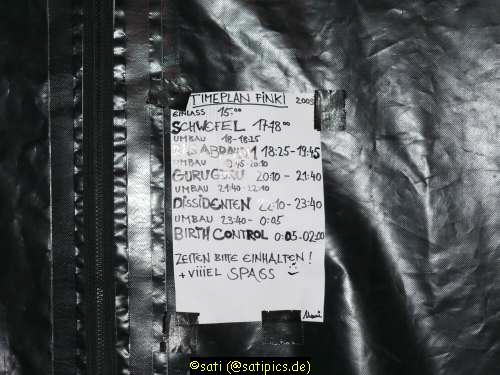 TIMEPLAN FINKI 2009
EINLASS 15.00
SCHWEFEL 17-18.00
UMBAU 18-18:25
18:25-19:45
UMBAU 20:10
GURUGURU 20:10 - 21:40
UMBAU 21:40-22:10
DISSIDENTEN 22:10-23:40
UMBAU 23:40- 0:05
BIRTH CONTROL 0:05-02:00
ZEITEN BITTE EINHALTEN!
+ ViiiEL SPASS
©sati (@satipics.de)